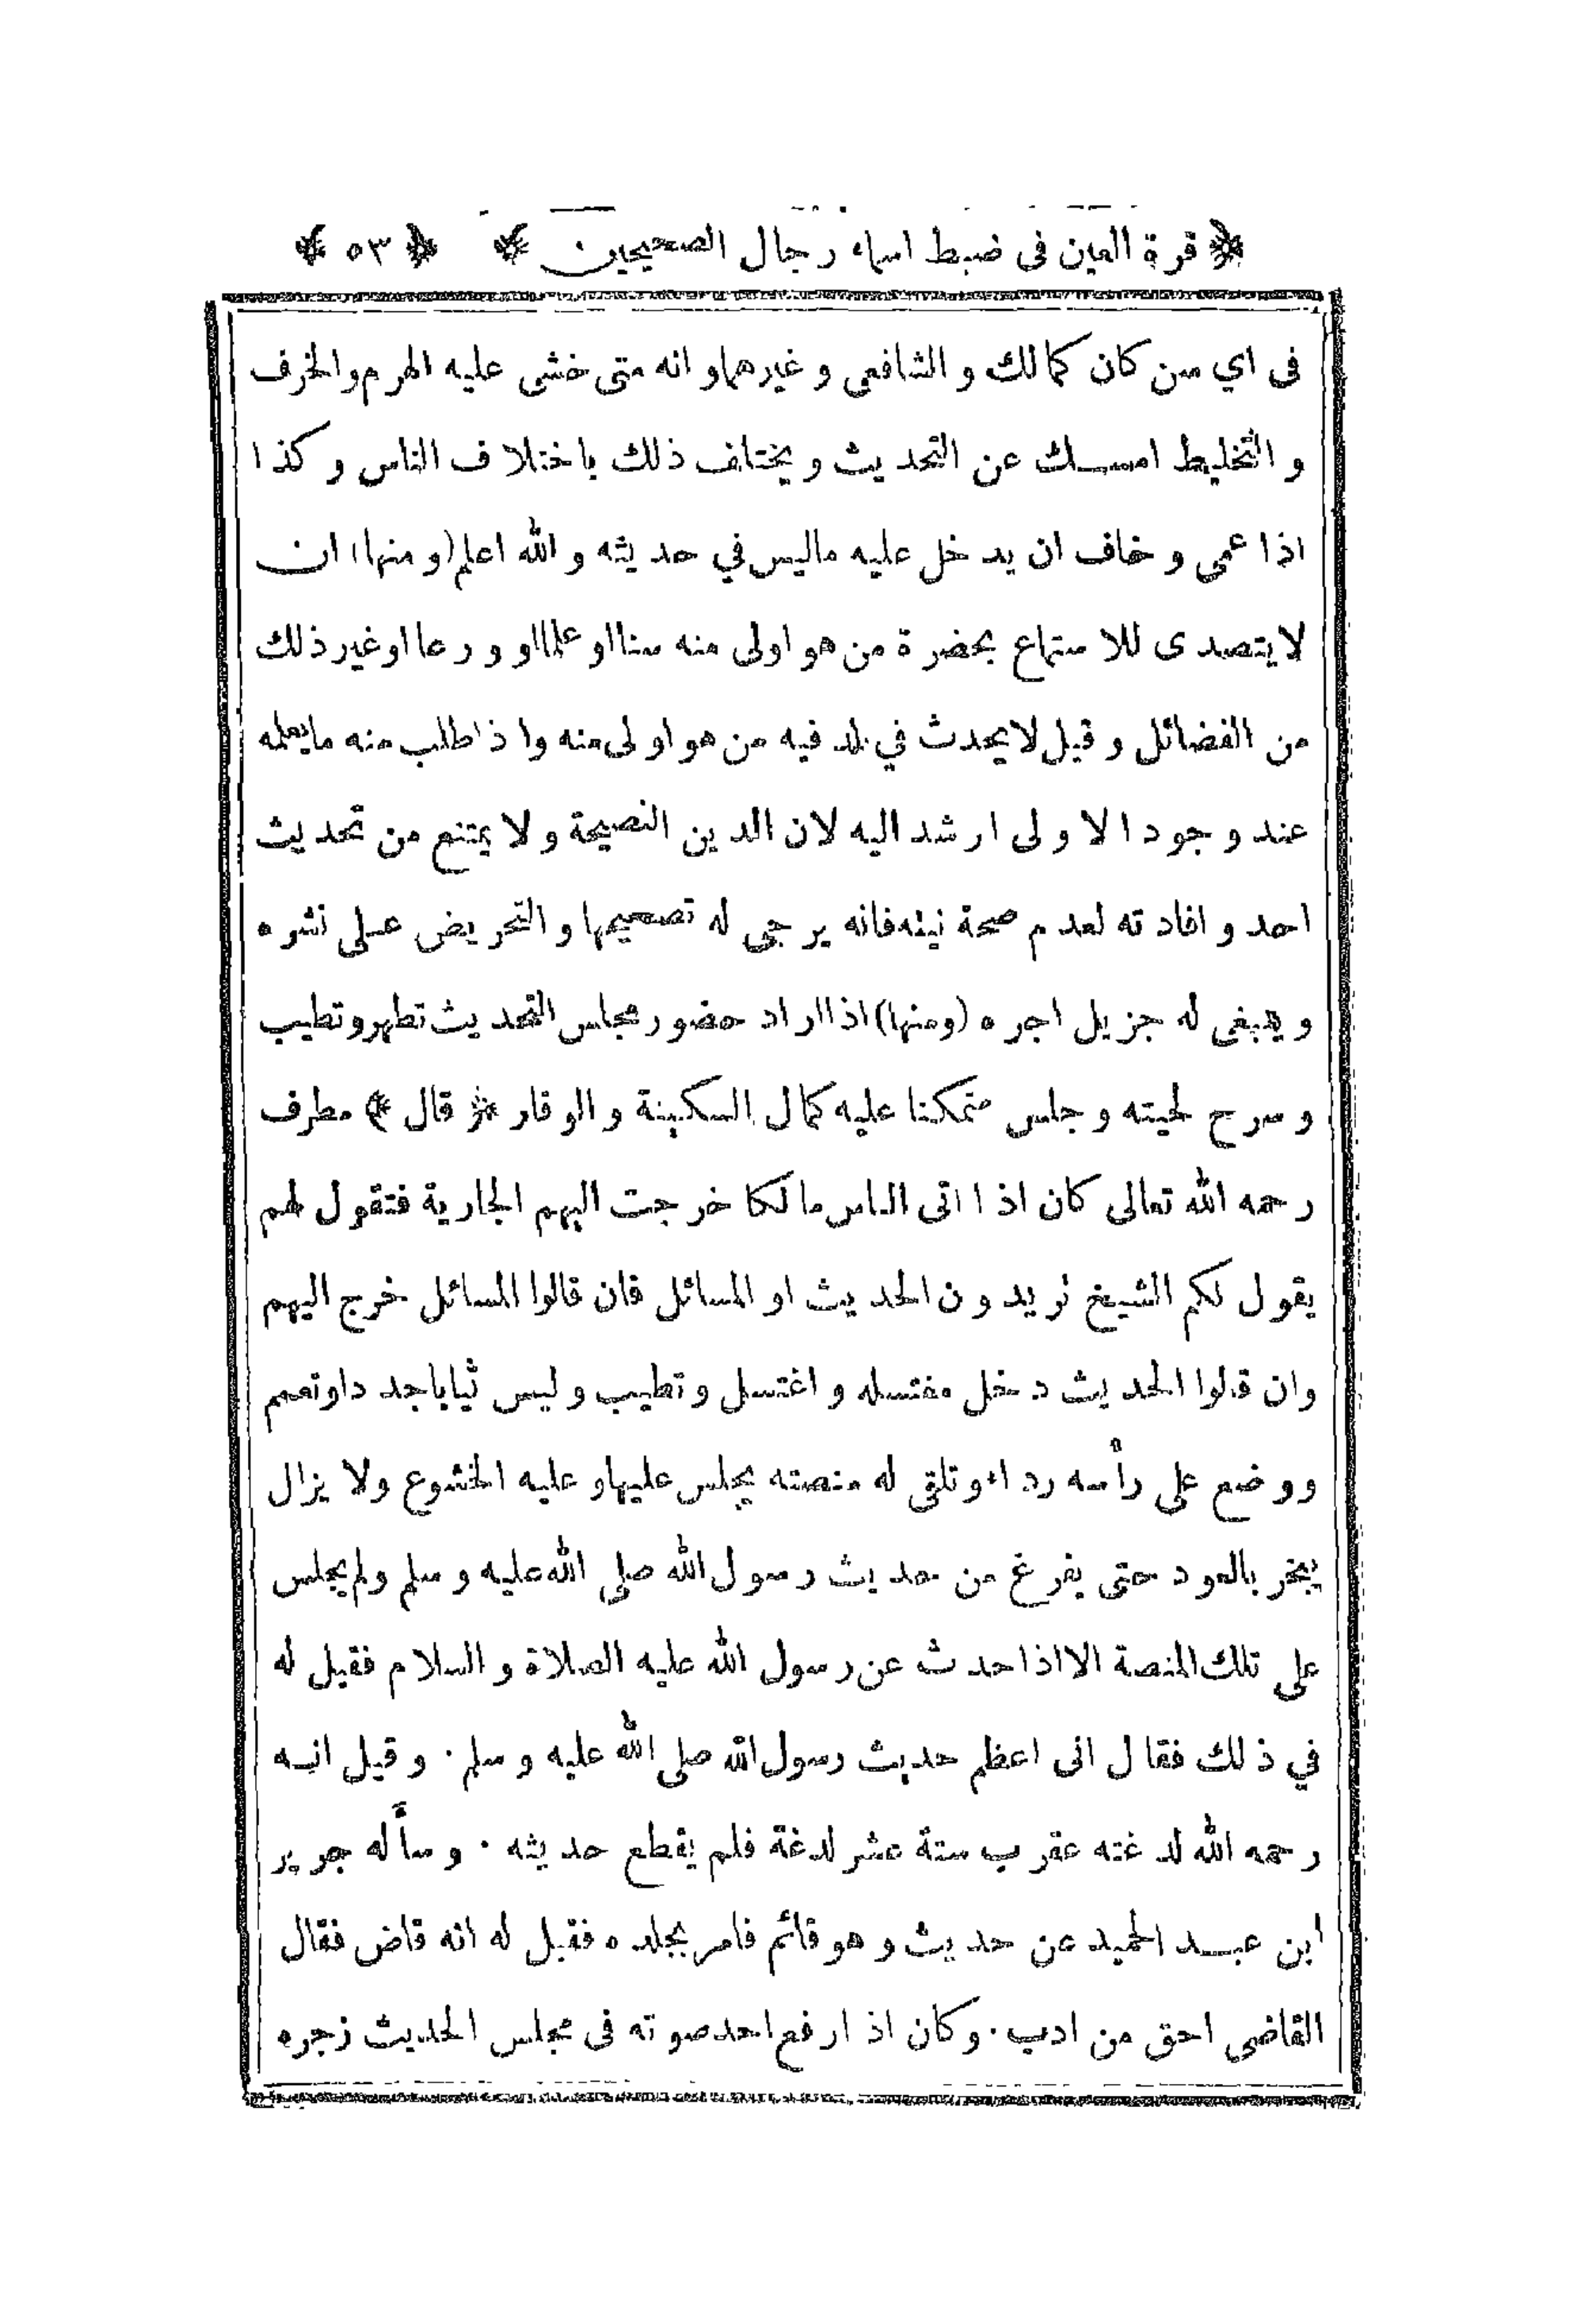 ﴿ قرة العين فى ضبط اسماء رجال الصحيحين ﴾ ﴿ ٥٣ ﴾
فى اي سن كان كمالك و الشافعى و غيرهما و انه متى خشى عليه الهرم والخرف
و التخليط امسك عن التحديث و يختلف ذلك باختلاف الناس و كذا
اذا عمى و خاف ان يدخل عليه ماليس في حديثه و الله اعلم (و منها) ان
لايتصدى للاستماع بحضرة من هو اولى منه سنا او علما او ورعا او غير ذلك
من الفضائل و قيل لايحدث في بلد فيه من هو اولى منه واذا طلب منه مايعلمه
عند وجود الاولى ارشد اليه لان الدين النصيحة ولا يمتنع من تحديث
احد و افادته لعدم صحة نيته فانه يرجى له تصحيحها و التحريض على نشره
و يبغى له جزيل اجره (ومنها) اذا اراد حضور مجلس التحديث تطهر وتطيب
و سرح لحيته و جلس متمكنا عليه كمال السكينة و الوقار ﴿ قال ﴾ مطرف
رحمه الله تعالى كان اذا اتى الناس مالكا خرجت اليهم الجارية فتقول لهم
يقول لكم الشيخ تريدون الحديث او المسائل فان قالوا المسائل خرج اليهم
وان قالوا الحديث دخل مغتسله و اغتسل و تطيب و لبس ثيابا جددا وتعمم
ووضع على رأسه رداء وتلقى له منصته يجلس عليها و عليه الخشوع ولا يزال
يبخر بالعود حتى يفرغ من حديث رسول الله صلى الله عليه و سلم ولم يجلس
على تلك المنصة الا اذا حدث عن رسول الله عليه الصلاة و السلام فقيل له
في ذلك فقال انى اعظم حديث رسول الله صلى الله عليه و سلم. و قيل انه
رحمه الله لدغته عقرب ستة عشر لدغة فلم يقطع حديثه . و سأله جرير
ابن عبد الحميد عن حديث و هو قائم فامر بجلده فقيل له انه قاض فقال
القاضى احق من ادب. وكان اذا رفع احد صوته فى مجلس الحديث زجره